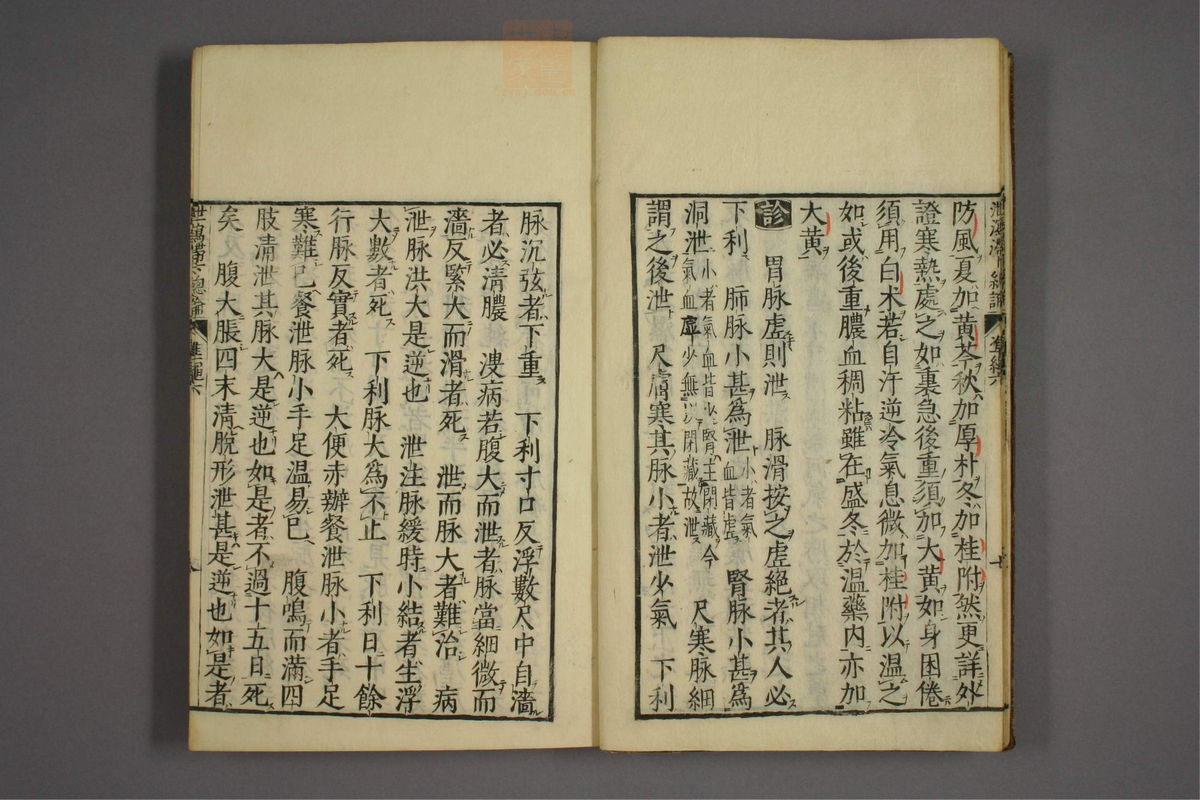 防風夏加黃芩秋加厚朴冬加桂附然更詳外
證寒熱處之如裏急後重須加大黃如身困倦
須用白朮若自汗逆冷氣息微加桂附以溫之
如或後重膿血稠粘雖在盛冬於溫藥內亦加
大黃
診 胃脉虛則泄 脉滑按之虛絕者其人必
下利 肺脉小甚爲泄小者氣血皆虛 腎脉小甚爲
洞泄小者氣血皆少腎主閉藏今氣血虛少無以閉藏故泄 尺寒脉細
謂之後泄 尺膚寒其脉小者泄少氣 下利
脉沉弦者下重 下利寸口反浮數尺中自濇
者必清膿 溲病若腹大而泄者脉當細微而
濇反緊大而滑者死 泄而脉大者難治 病
泄脉洪大是逆也 泄注脉緩時小結者生浮
大數者死 下利脉大爲不止 下利日十餘
行脉反實者死 大便赤瓣餐泄脉小者手足
寒難已餐泄脉小手足溫易已 腹鳴而滿四
肢清泄其脉大是逆也如是者不過十五日死
矣 腹大脹四末清脫形泄甚是逆也如是者